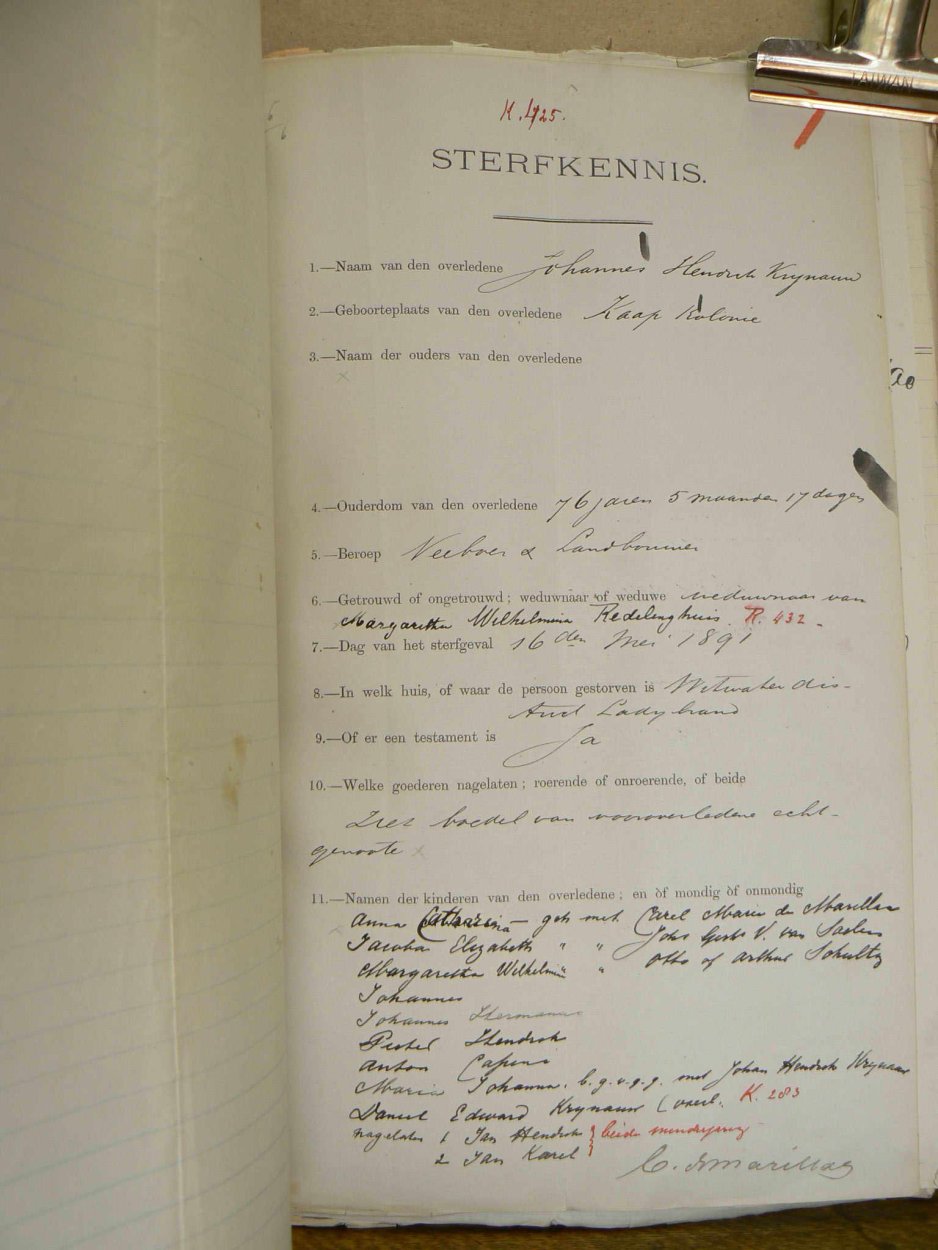 TAIWAN
K. 425.
STERFKENNIS.
1.—Naam van den overledene Johannes Hendrik Krynauw
2.—Geboorteplaats van den overledene Kaap Kolonie
3.—Naam der ouders van den overledene
4.—Ouderdom van den overledene 76 jaren 5 maanden 17 dagen
5.—Beroep Veeboer & Landbouwer
6.—Getrouwd of ongetrouwd; weduwnaar of weduwe weduwnaar van
Margaretha Wilhelmina Redelinghuis. R. 432.
7.—Dag van het sterfgeval 16den Mei 1891
8.—In welk huis, of waar de persoon gestorven is Witwater dis-
trict Ladybrand
9.—Of er een testament is Ja
10.—Welke goederen nagelaten; roerende of onroerende, of beide
Ziet boedel van vooroverledene echt-
genoote
11.—Namen der kinderen van den overledene; en òf mondig òf onmondig
Anna Catharina — geh met Carel Marie de Marillac
Jacoba Elizabeth " " Johs Gerts V. van
Margaretha Wilhelmina " Otto of Arthur Schultz
Johannes
Johannes Hermanus
Pieter Hendrik
Anton
Maria Johanna. b.g.v.g.g. met Johan Hendrik Krynauw
Daniel Edward Krynauw (overl. K. 283
nagelaten 1 Jan Hendrik } beide minderjarig
2 Jan Karel }
C. d Marillac